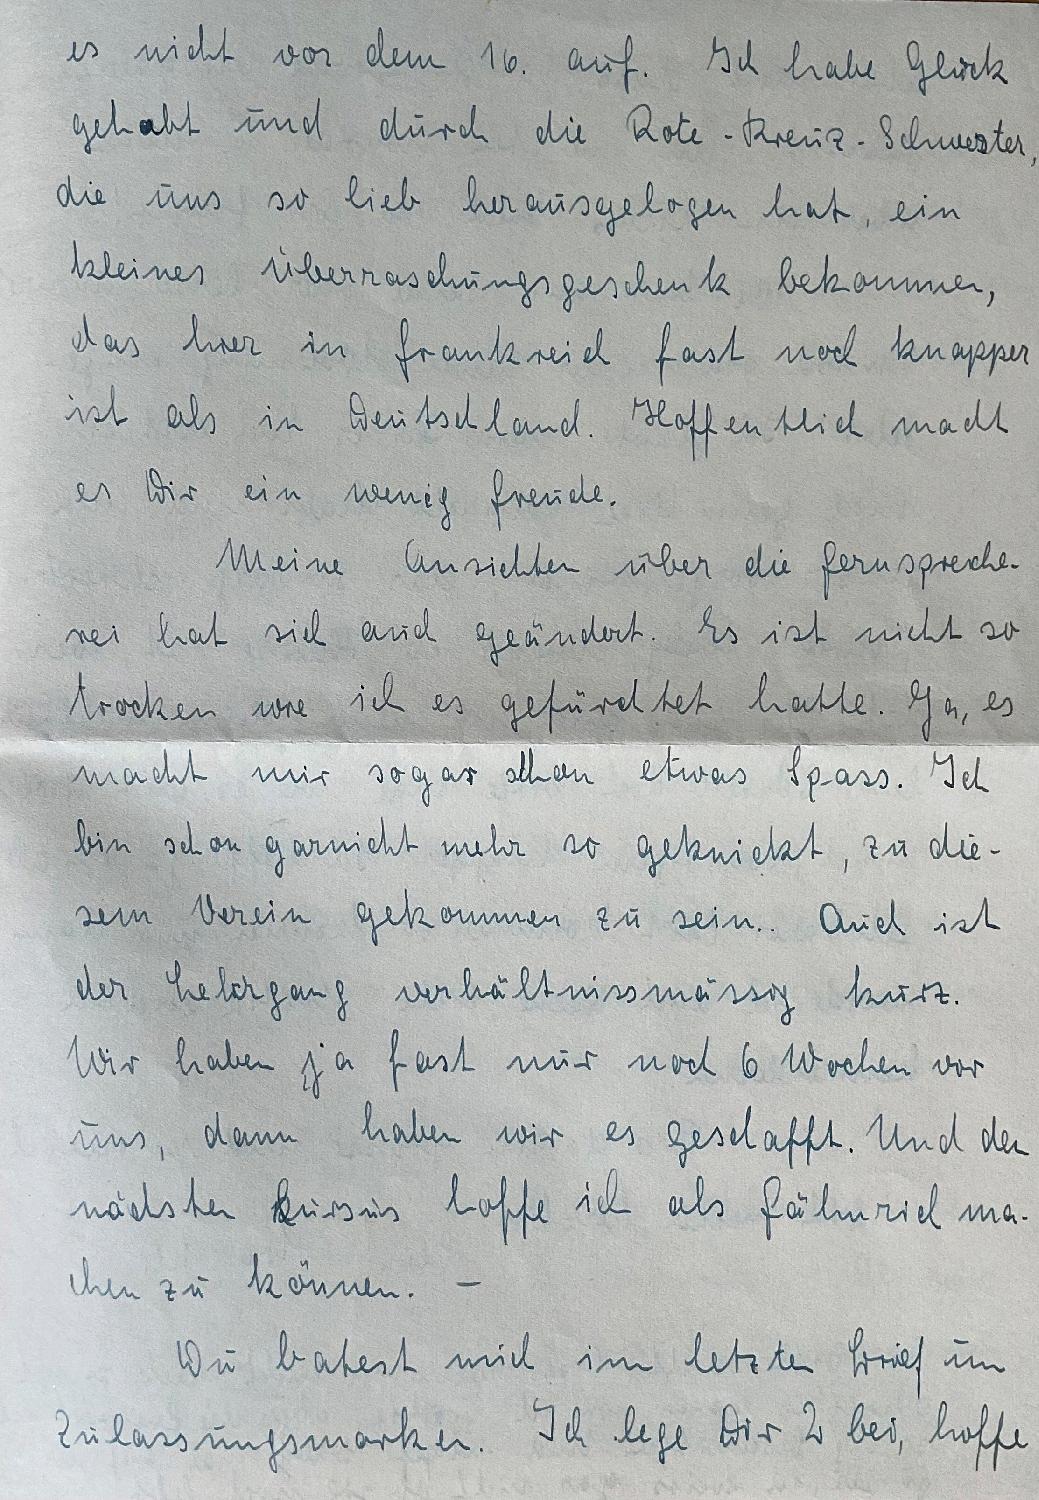 es nicht vor dem 16. auf. Ich habe Glück
gehabt und durch die Rote-Kreuz-Schwester,
die uns so lieb herausgelogen hat, ein
kleines Überraschungsgeschenk bekommen,
das hier in Frankreich fast noch knapper
ist als in Deutschland. Hoffentlich macht
es Dir ein wenig Freude.
Meine Ansichten über die Fernspreche-
rei hat sich auch geändert. Es ist nicht so
trocken wie ich es gefürchtet hatte. Ja, es
macht mir sogar schon etwas Spass. Ich
bin schon garnicht mehr so geknickt, zu die-
sem Verein gekommen zu sein.. Auch ist
der Lehrgang verhältnissmässig kurz.
Wir haben ja fast nur noch 6 Wochen vor
uns, dann haben wir es geschafft. Und den
nächsten Kursus hoffe ich als Fähnrich ma-
chen zu können. —
Du batest mich im letzten Brief um
Zulassungsmarken. Ich lege Dir 2 bei, hoffe